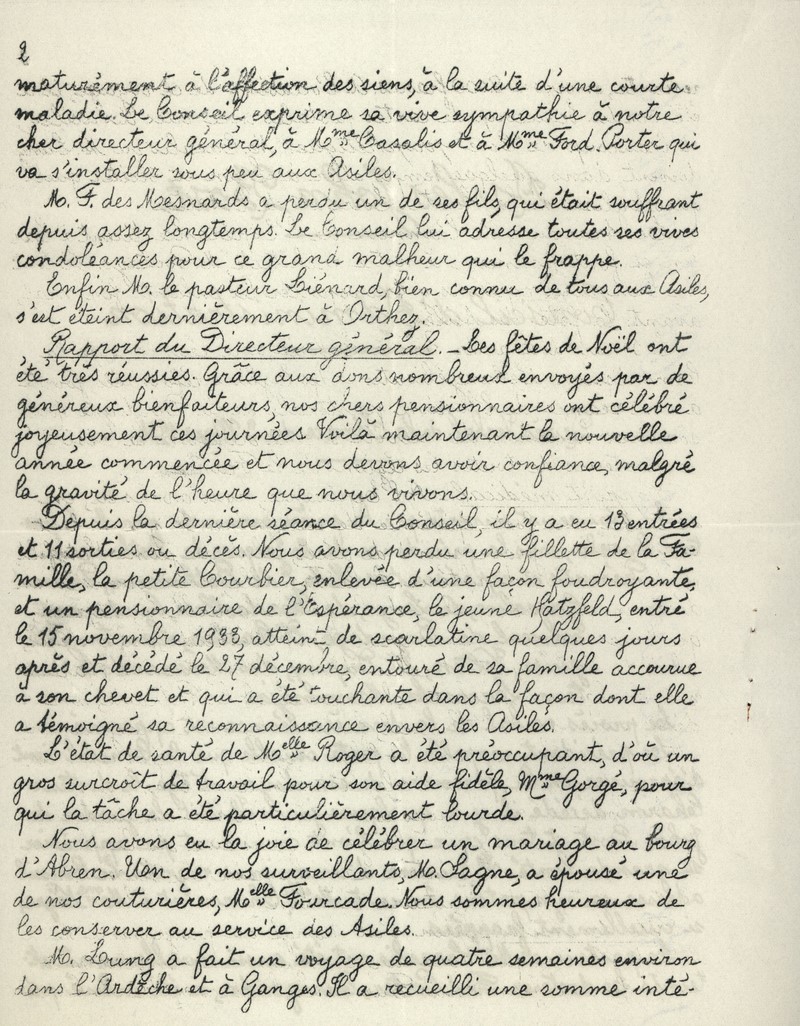 2
maturément à l'affection des siens, à la suite d'une courte
maladie. Le Conseil exprime sa vive sympathie à notre
cher directeur général, à Mme Casalis et à Mme Ford. Porter qui
va s'installer sous peu aux Asiles.
M. F. des Mesnards a perdu un de ses fils, qui était souffrant
depuis assez longtemps. Le Conseil lui adresse toutes ses vives
condoléances pour ce grand malheur qui le frappe.
Enfin M. le pasteur Liénard, bien connu de tous aux Asiles,
s'est éteint dernièrement à Orthez.
Rapport du Directeur général. - Les fêtes de Noël ont
été très réussies. Grâce aux dons nombreux envoyés par de
généreux bienfaiteurs, nos chers pensionnaires ont célébré
joyeusement ces journées. Voilà maintenant la nouvelle
année commencée et nous devons avoir confiance, malgré
la gravité de l'heure que nous vivons.
Depuis la dernière séance du Conseil, il y a eu 13 entrées
et 11 sorties ou décès. Nous avons perdu une fillette de la Fa-
mille, la petite Courbier, enlevée d'une façon foudroyante,
et un pensionnaire de l'Espérance, le jeune Hatzfeld, entré
le 15 novembre 1933, atteint de scarlatine quelques jours
après et décédé le 27 décembre, entouré de sa famille accourue
à son chevet et qui a été touchante dans la façon dont elle
a témoigné sa reconnaissance envers les Asiles.
L'état de santé de Melle Roger a été préoccupant, d'où un
gros surcroît de travail pour son aide fidèle, Mme Gorgé, pour
qui la tâche a été particulièrement lourde.
Nous avons eu la joie de célébrer un mariage au bourg
d'Abren. Un de nos surveillants, M. Sagne, a épousé une
de nos couturières, Melle Fourcade. Nous sommes heureux de
les conserver au service des Asiles.
M. Lung a fait un voyage de quatre semaines environ
dans l'Ardèche et à Ganges. Il a recueilli une somme inté-